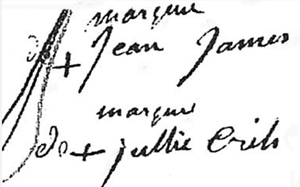 marque
de + Jean James
marque
de + jullie Crils